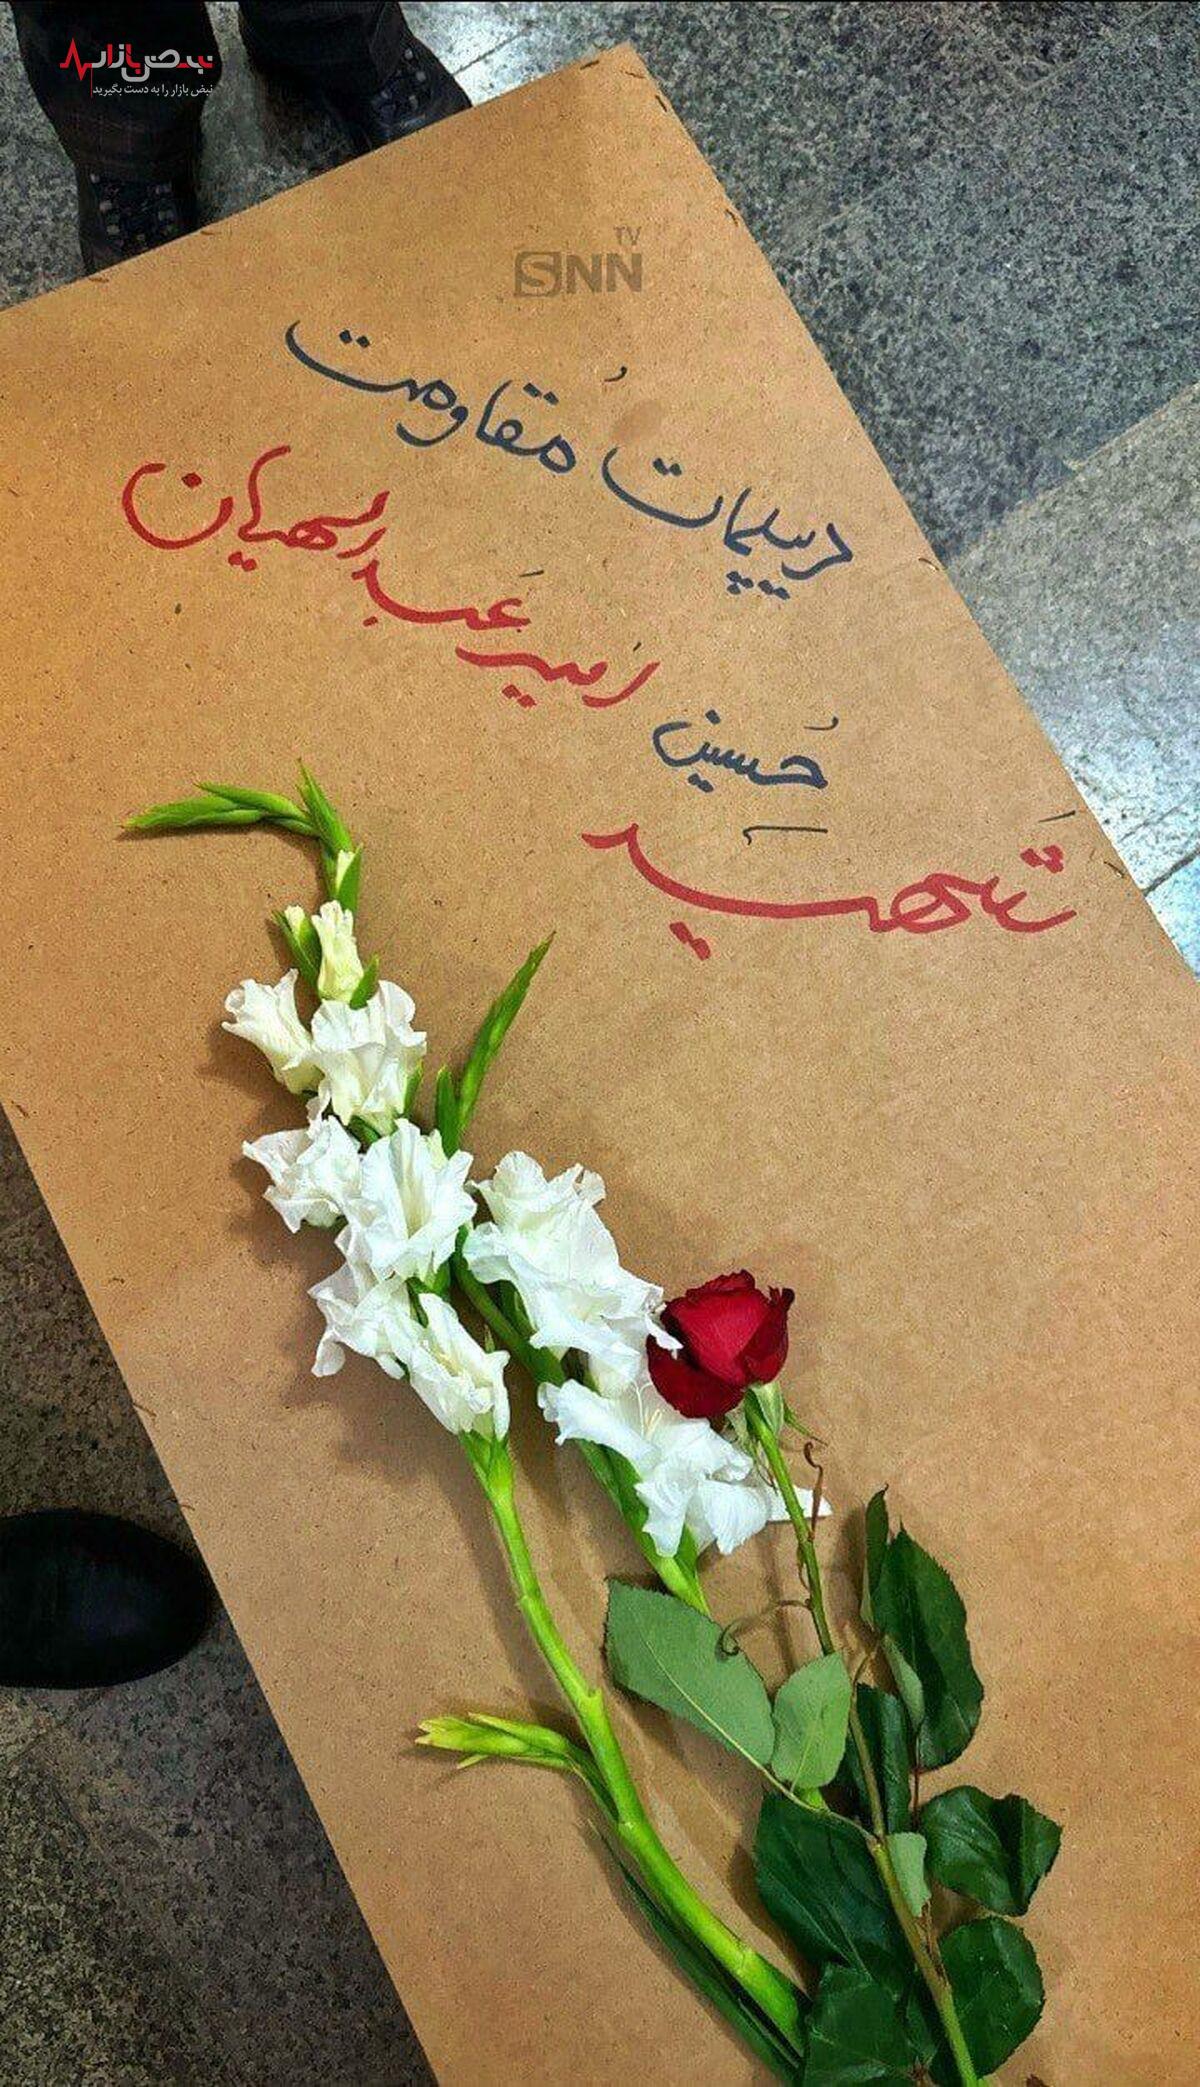 نبض بازار
نبض بازار را به دست بگیرید
TV
SNN
دیپلمات مقاومت
شهید حسین امیرعبداللهیان